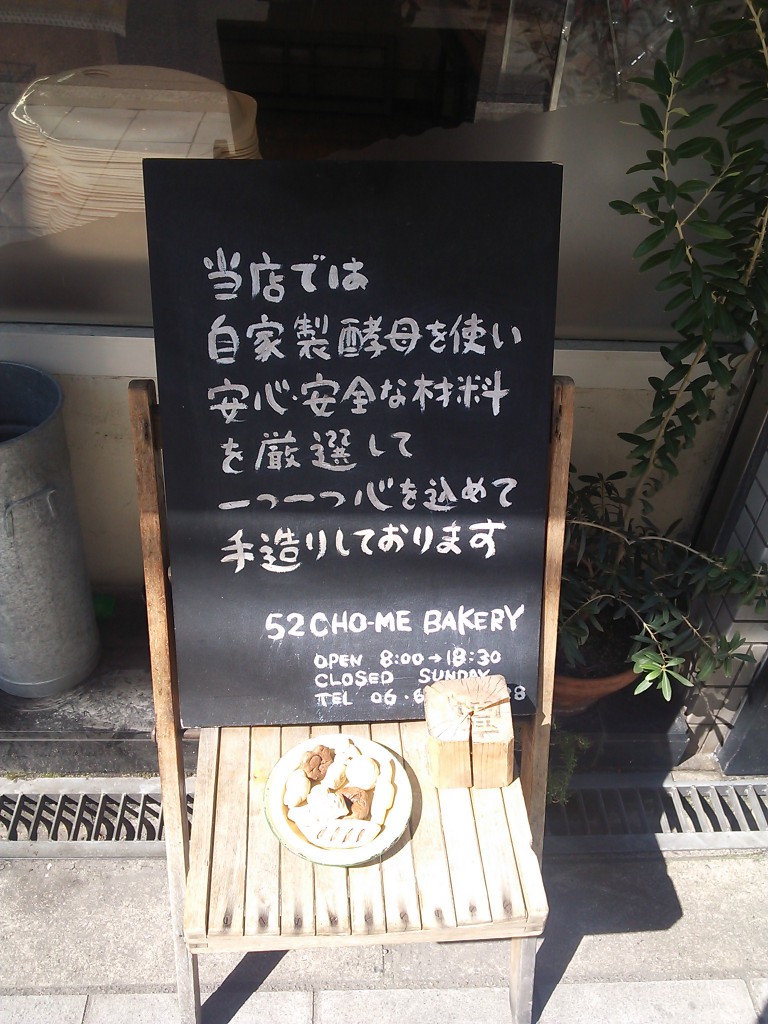 当店では
自家製酵母を使い
安心・安全な材料
を厳選して
一つ一つ心を込めて
手造りしております
52CHO-ME BAKERY
OPEN 8:00→18:30
CLOSED SUNDAY
TEL 06